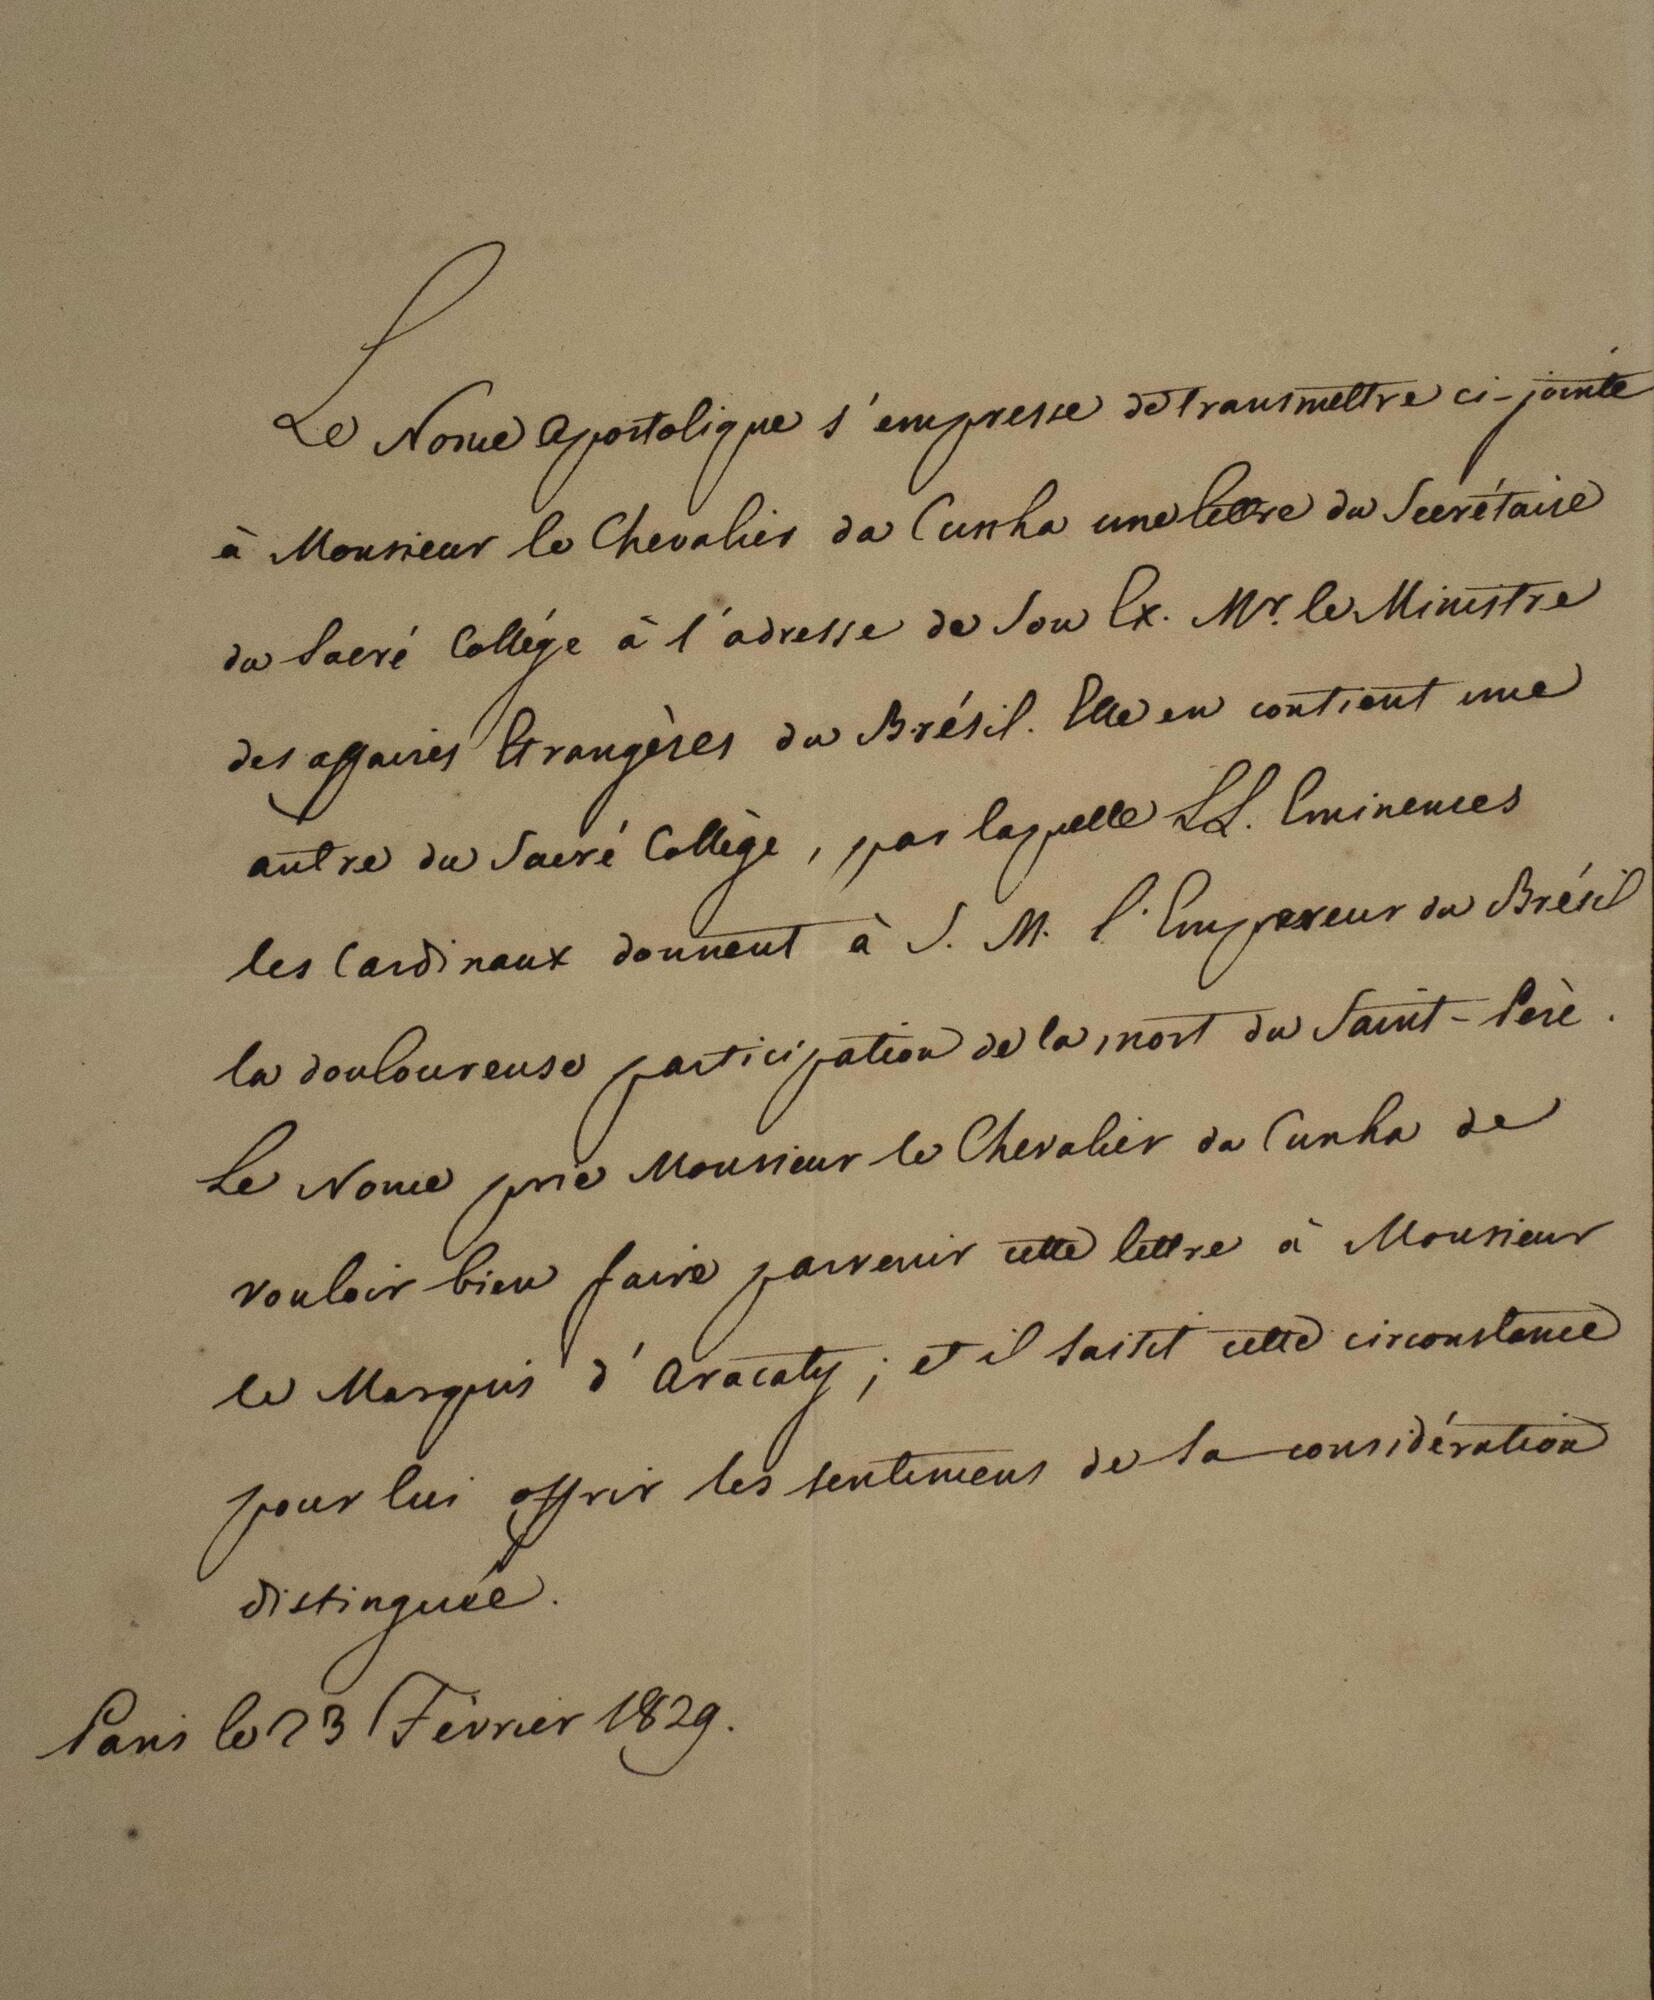 Le Nonce Apostolique s'empresse de transmettre ci-jointe
à Monsieur le Chevalier da Cunha une lettre du Secrétaire
du Sacré Collége à l'adresse de Son Ex. Mr. le Ministre
des affaires Etrangères du Brésil. Elle en contient une
autre du Sacré Collège, par laquelle LL. Eminences
les Cardinaux donnent à S. M. l'Empereur du Brésil
la douloureuse participation de la mort du Saint-Père.
Le Nonce prie Monsieur le Chevalier da Cunha de
vouloir bien faire parvenir cette lettre à Monsieur
le Marquis d'Aracaty; et il saisit cette circonstance
pour lui offrir les sentimens de sa considération
distinguée.
Paris le 23 Février 1829.